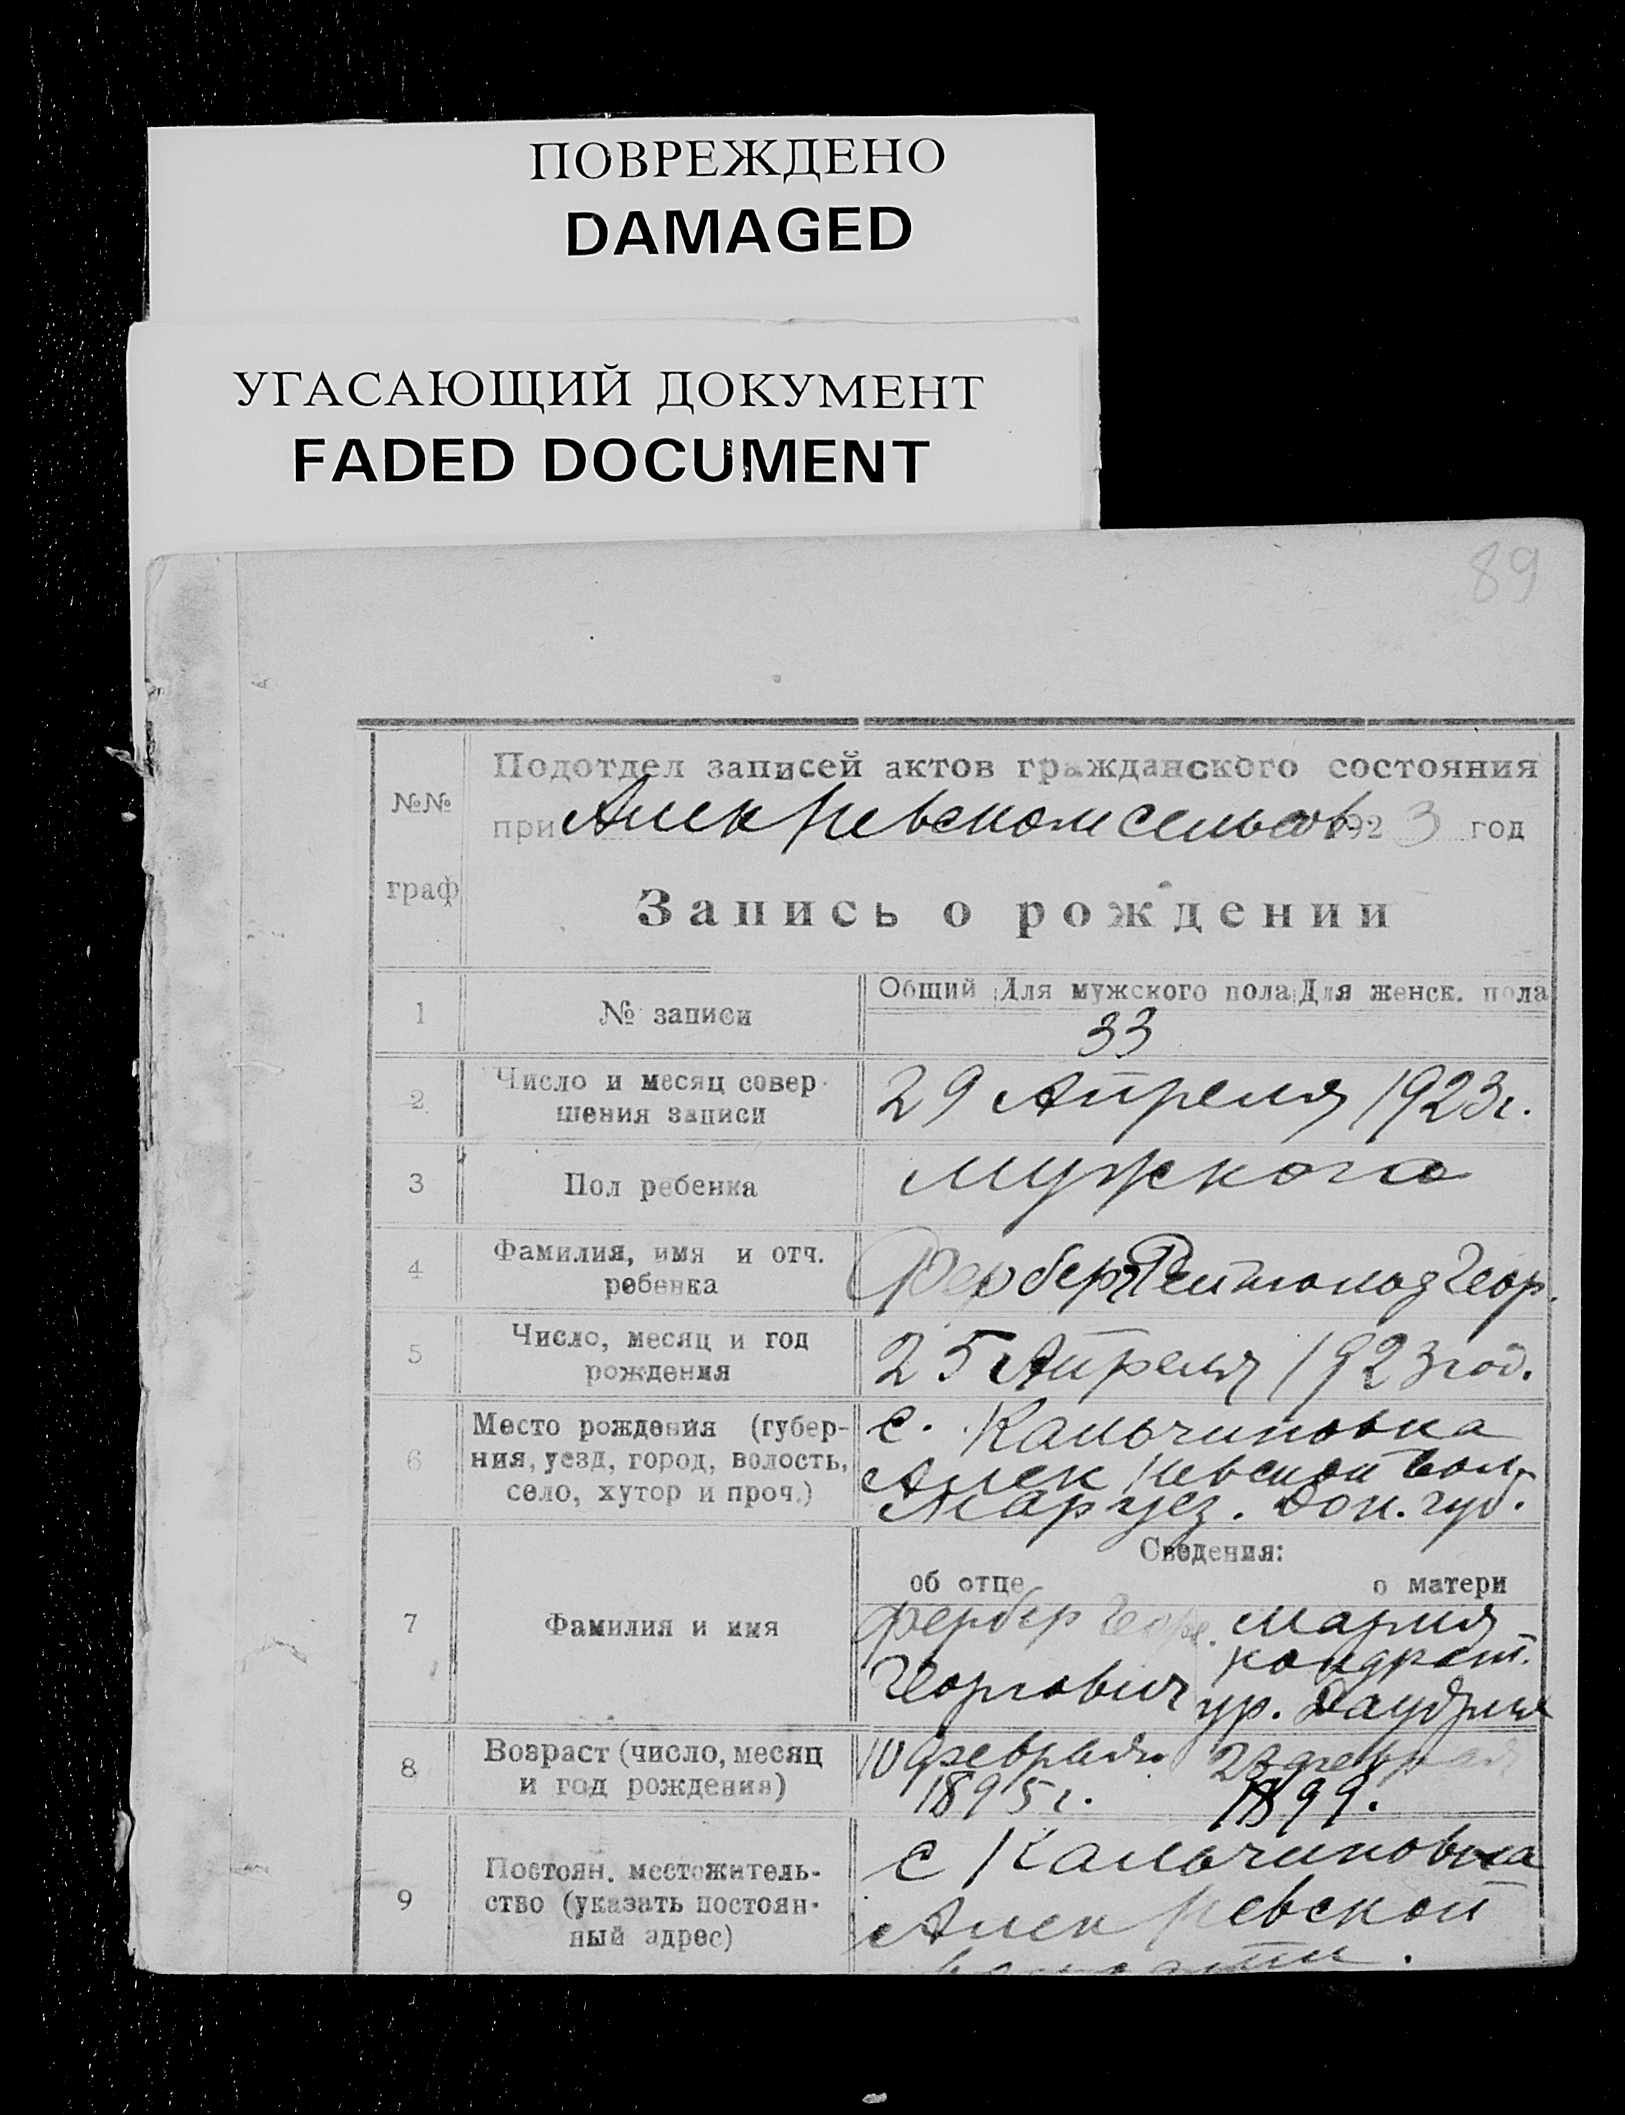 ПОВРЕЖДЕНО
DAMAGED
УГАСАЮЩИЙ ДОКУМЕНТ
FADED DOCUMENT
89
№№ граф
Подотдел записей актов гражданского состояния
при Алек Невском сельсов 1923 год
Запись о рождении
Общий Для мужского пола Для женск. пола
1 № записи 33
2 Число и месяц совер-
шения записи 29 Апреля 1923 г.
3 Пол ребенка мужского
4 Фамилия, имя и отч.
ребенка Фербер Рейнгольд Геор.
5 Число, месяц и год
рождения 25 Апреля 1923 год.
6 Место рождения (губер-
ния, уезд, город, волость,
село, хутор и проч.)
с. Кальчиновка
Алек Невской вол.
Мар уез. Дон. губ.
Сведения:
об отце о матери
7 Фамилия и имя
Фербер Геор. Мария
Кондрат.
Георгович ур.
8 Возраст (число, месяц
и год рождения)
10 февраля
1895 г.
февраля
1899.
9 Постоян. местожитель-
ство (указать постоян-
ный адрес)
с Кальчиновка
Алек Невской
волости.